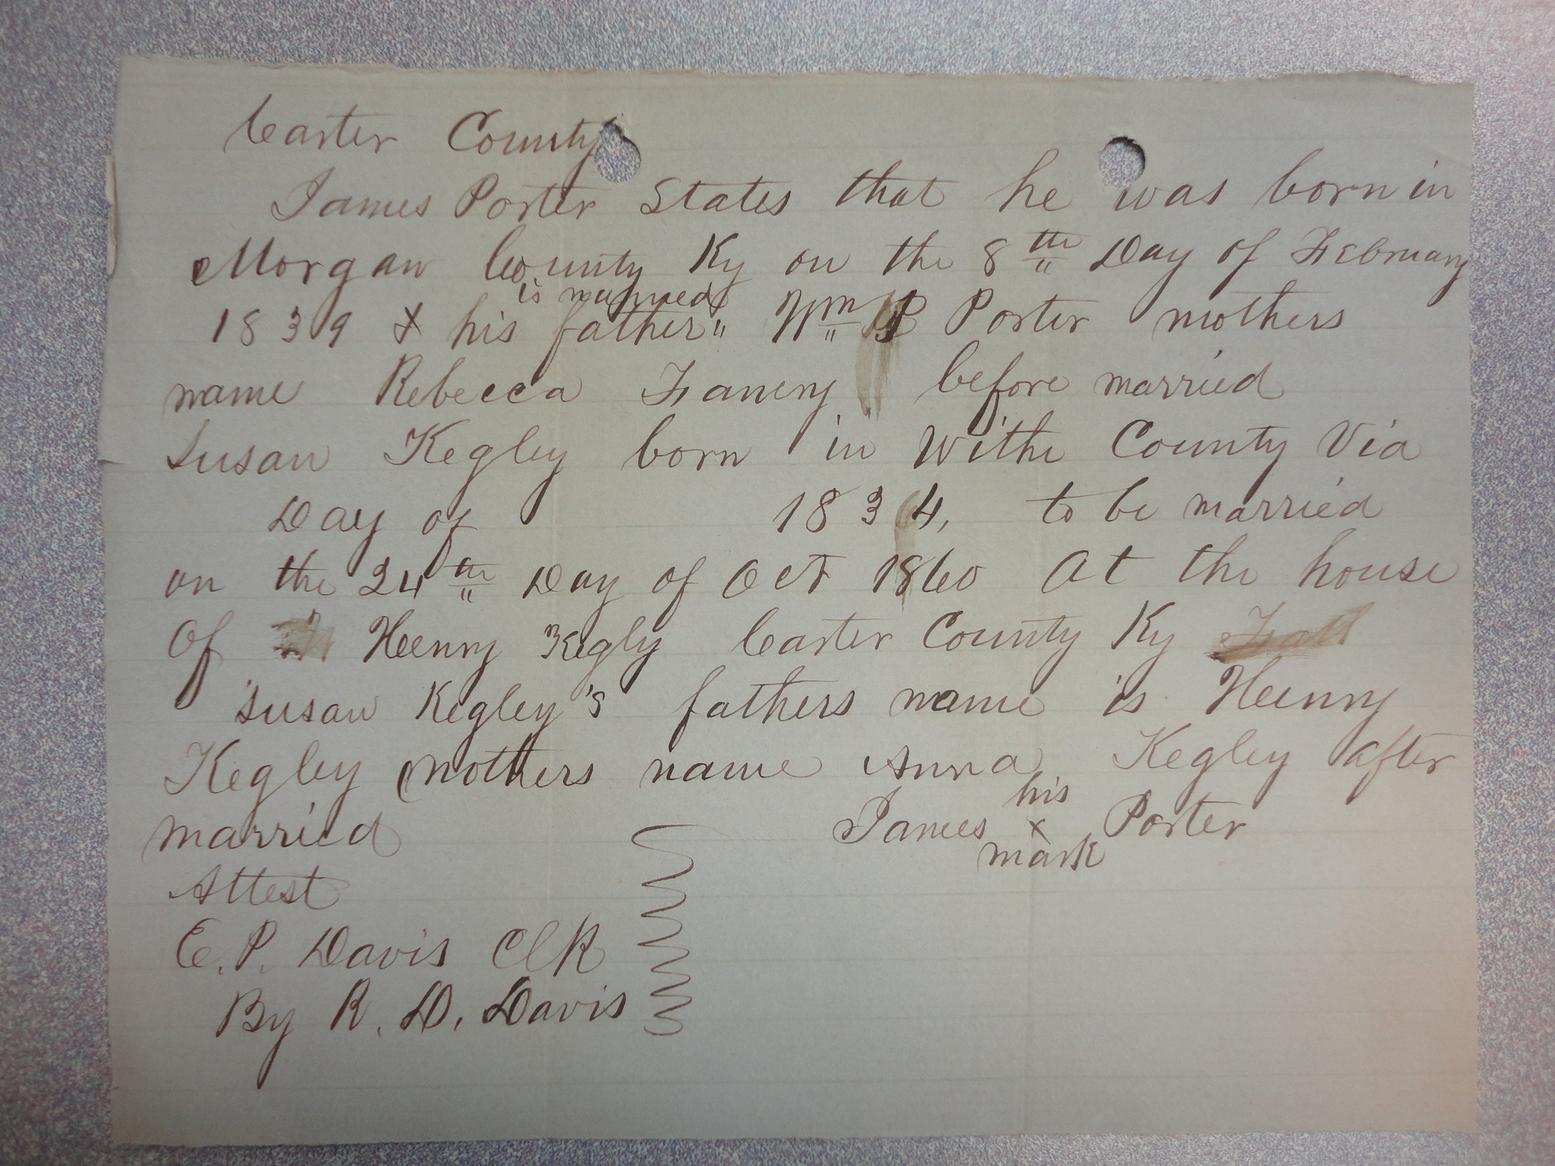 Carter County
James Porter States that he was born in
Morgan County Ky on the 8th Day of February
is married
1839 & his father" Wm P Porter mothers
name Rebecca before married
Susan Kegley born in Withe County Via
Day of 1834, to be married
on the 24th Day of Oct 1860 At the house
Of Heenry Kegly Carter County Ky
Susan Kegley's fathers name is Heenry
Kegley mothers name Anna Kegley after
married
his
James x Porter
mark
Attest
E. P. Davis Clk
By R. D. Davis